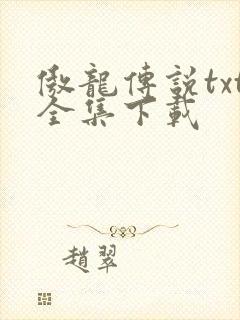 傲龍傳説txt
全集下載
趙翠